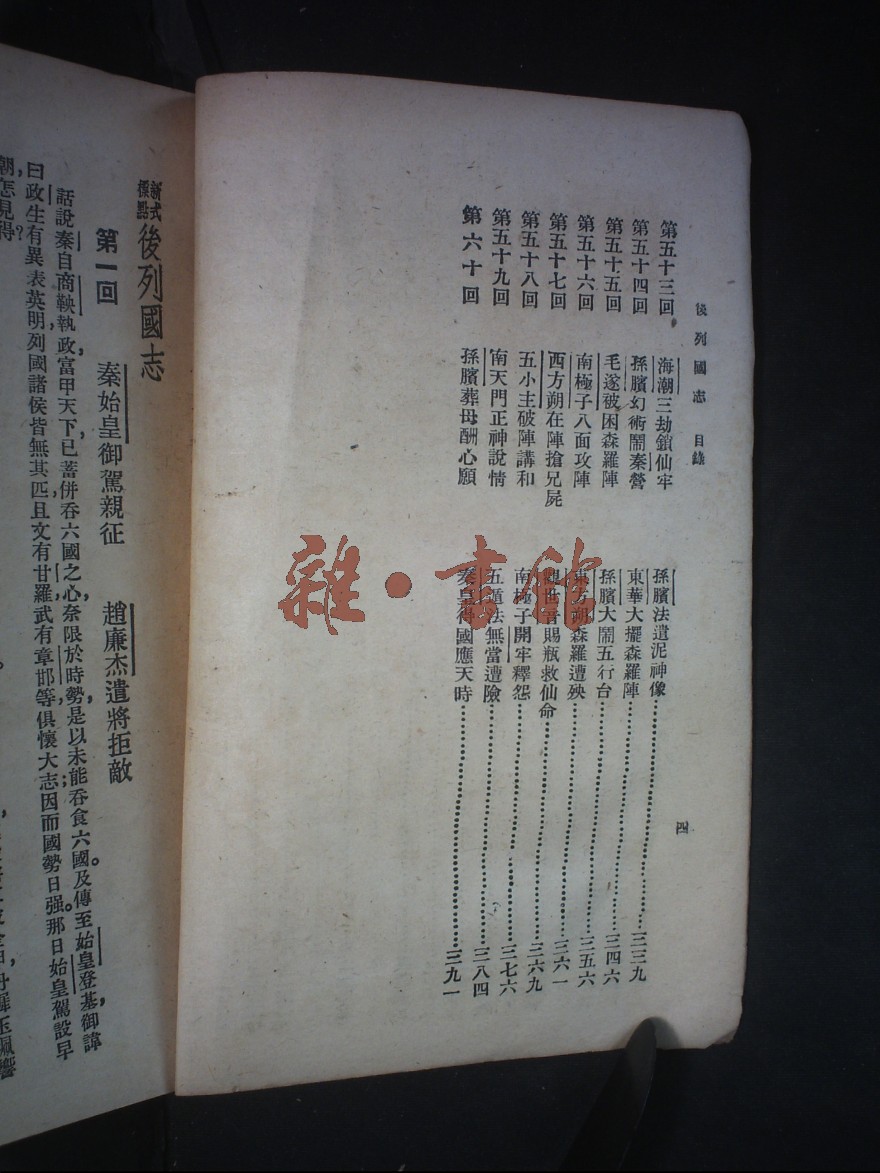 後列國志 目錄
四
第五十三回 海潮三劫鎖仙牢 孫臏法遣泥神像 三三九
第五十四回 孫臏幻術鬧秦營 東華大擺森羅陣 三四六
第五十五回 毛遂被困森羅陣 孫臏大鬧五行台 三五六
第五十六回 南極子八面攻陣 東方朔森羅遭殃 三六一
第五十七回 西方朔在陣搶兄屍 觀世音賜瓶救仙命 三六九
第五十八回 五小主破陣講和 南極子開牢釋怨 三七六
第五十九回 南天門正神說情 五雷法無當遭險 三八四
第六十回 孫臏葬母酬心願 秦皇得國應天時 三九一
雜·書館
新式標點 後列國志
第一回 秦始皇御駕親征 趙廉杰遣將拒敵
話說秦自商鞅執政，富甲天下，已蓄併吞六國之心，奈限於時勢，是以未能吞食六國。及傳至始皇登基，御諱
曰政，生有異表，英明列國諸侯，皆無其匹；且文有甘羅，武有章邯等，俱懷大志，因而國勢日强。那日始皇駕設早
朝，怎見得？